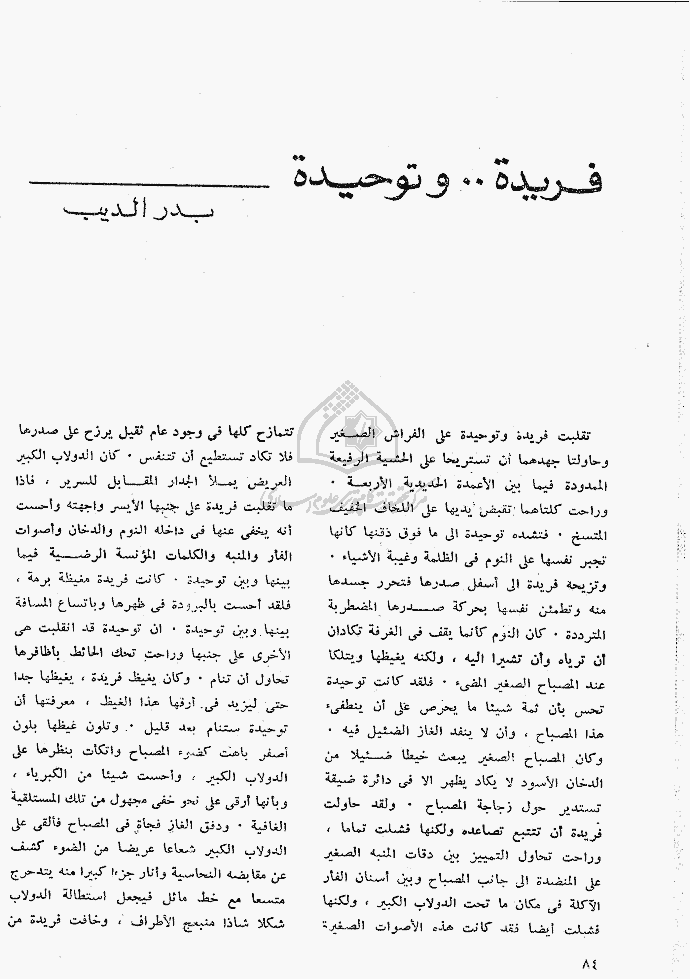 فريدة ٠٠ وتوحيدة
بدر الديب
تقلبت فريدة وتوحيدة على الفراش الصغير
وحاولتا جهدهما أن تستريحا على الحشية الرفيعة
الممدودة فيما بين الأعمدة الحديدية الأربعة ٠
وراحت كلتاهما تقبض يديها على اللحاف الخفيف
المتسخ ٠ فتشده توحيدة الى ما فوق ذقنها كأنها
تجبر نفسها على النوم فى الظلمة وغيبة الأشياء ٠
وتزيحه فريدة الى أسفل صدرها فتحرر جسدها
منه وتطمئن نفسها بحركة صدرها المضطربة
المترددة ٠ كان النوم كأنما يقف فى الغرفة تكادان
أن ترياه وأن تشيرا اليه ، ولكنه يغيظها ويتلكأ
عند المصباح الصغير المضىء ٠ فلقد كانت توحيدة
تحس بأن ثمة شيئا ما يحرص على أن ينطفىء
هذا المصباح ، وأن لا ينفد الغاز الضئيل فيه ٠
وكان المصباح الصغير يبعث خيطا ضئيلا من
الدخان الأسود لا يكاد يظهر الا فى دائرة ضيقة
تستدير حول زجاجة المصباح ٠ ولقد حاولت
فريدة أن تتتبع تصاعده ولكنها فشلت تماما ،
وراحت تحاول التمييز بين دقات المنبه الصغير
على المنضدة الى جانب المصباح وبين أسنان الفأر
الآكلة فى مكان ما تحت الدولاب الكبير ، ولكنها
فشلت أيضا فقد كانت هذه الأصوات الصغيرة
تتمازح كلها فى وجود عام ثقيل يرزح على صدرها
فلا تكاد تستطيع أن تتنفس ٠ كان الدولاب الكبير
العريض يملأ الجدار المقابل للسرير ، فاذا
ما تقلبت فريدة على جنبها الأيسر واجهته وأحست
أنه يخفى عنها فى داخله النوم والدخان وأصوات
الفأر والمنبه والكلمات المؤنسة الرضية فيما
بينها وبين توحيدة ٠ كانت فريدة مغيظة برمة ،
فلقد أحست بالبرودة فى ظهرها وباتساع المسافة
بينها وبين توحيدة ٠ ان توحيدة قد انقلبت هى
الأخرى على جنبها وراحت تحك الحائط بأظافرها
تحاول أن تنام ٠ وكان يغيظ فريدة ، يغيظها جدا
حتى ليزيد فى أرقها هذا الغيظ ، معرفتها أن
توحيدة ستنام بعد قليل ٠ وتلون غيظها بلون
أصفر باهت كضوء المصباح واتكأت بنظرها على
الدولاب الكبير ، وأحست شيئا من الكبرياء ،
وبأنها أرقى على نحو خفى مجهول من تلك المستلقية
الغافية ٠ ودفق الغاز فجأة فى المصباح فألقى على
الدولاب الكبير شعاعا عريضا من الضوء كشف
عن مقابضه النحاسية وأنار جزءا كبيرا منه يتدحرج
متسعا مع خط مائل فيجعل استطالة الدولاب
شكلا شاذا منبعج الأطراف ، وخافت فريدة من
٨٤